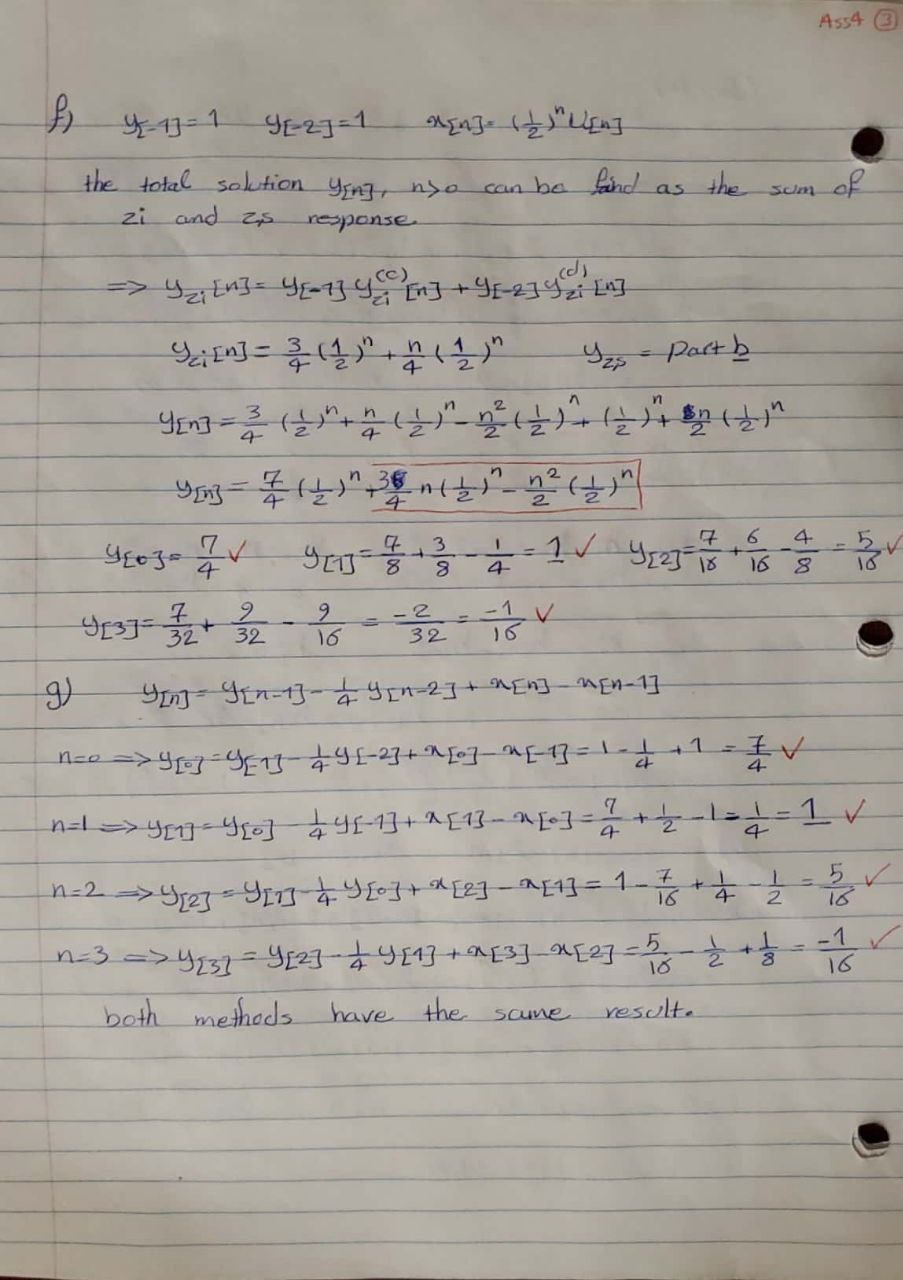 Ass4 ③
f) y[-1]=1 y[-2]=1 x[n]=(1/2)^n U[n]
the total solution y[n], n>0 can be find as the sum of
zi and zs response.
=> y_zi[n]= y[-1] y_zi^(c)[n] + y[-2] y_zi^(d)[n]
y_zi[n] = 3/4 (1/2)^n + n/4 (1/2)^n y_zs = Part b
y[n] = 3/4 (1/2)^n + n/4 (1/2)^n - n^2/2 (1/2)^n + (1/2)^n + n/2 (1/2)^n
y[n] = 7/4 (1/2)^n + 3/4 n (1/2)^n - n^2/2 (1/2)^n
y[0]= 7/4 ✓ y[1]= 7/8 + 3/8 - 1/4 = 1 ✓ y[2]= 7/16 + 6/16 - 4/8 = 5/16 ✓
y[3]= 7/32 + 9/32 - 9/16 = -2/32 = -1/16 ✓
g) y[n]= y[n-1] - 1/4 y[n-2] + x[n] - x[n-1]
n=0 => y[0]= y[-1] - 1/4 y[-2] + x[0] - x[-1] = 1 - 1/4 + 1 = 7/4 ✓
n=1 => y[1]= y[0] - 1/4 y[-1] + x[1] - x[0] = 7/4 + 1/2 - 1 - 1/4 = 1 ✓
n=2 => y[2] = y[1] - 1/4 y[0] + x[2] - x[1] = 1 - 7/16 + 1/4 - 1/2 = 5/16 ✓
n=3 => y[3] = y[2] - 1/4 y[1] + x[3] - x[2] = 5/16 - 1/2 + 1/8 = -1/16 ✓
both methods have the same result.